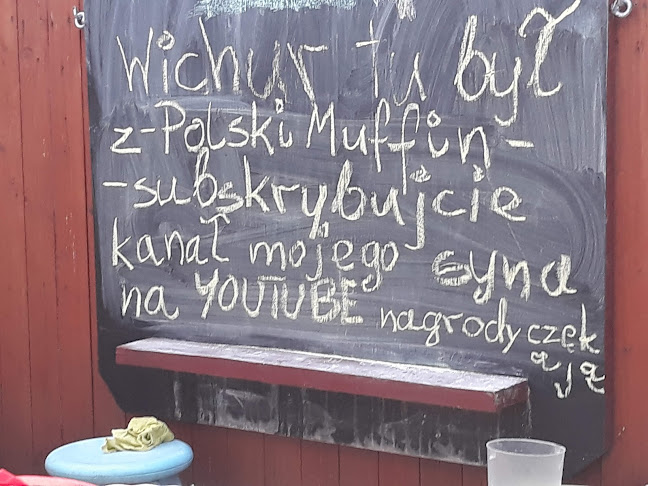 Wichur tu był
z-Polski Muffin-
-subskrybujcie
kanał mojego syna
na YOUTUBE nagrody częk
ają